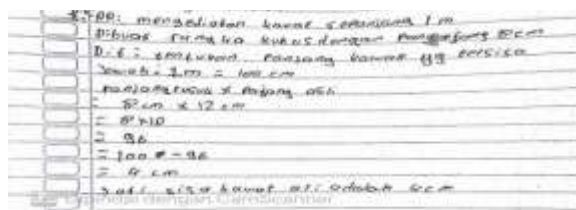 mengediakan kawat sepanjang 1 m
Dibuat rangka kubus dengan Panjang 8 cm
Dit : tentukan Panjang kawat yg tersisa
Jawab : 1 m = 100 cm
x
8 cm x 12 cm
=
= 96
= 100 - 96
= 4 cm
Jadi sisa kawat adalah 4 cm
dengan CamScanner